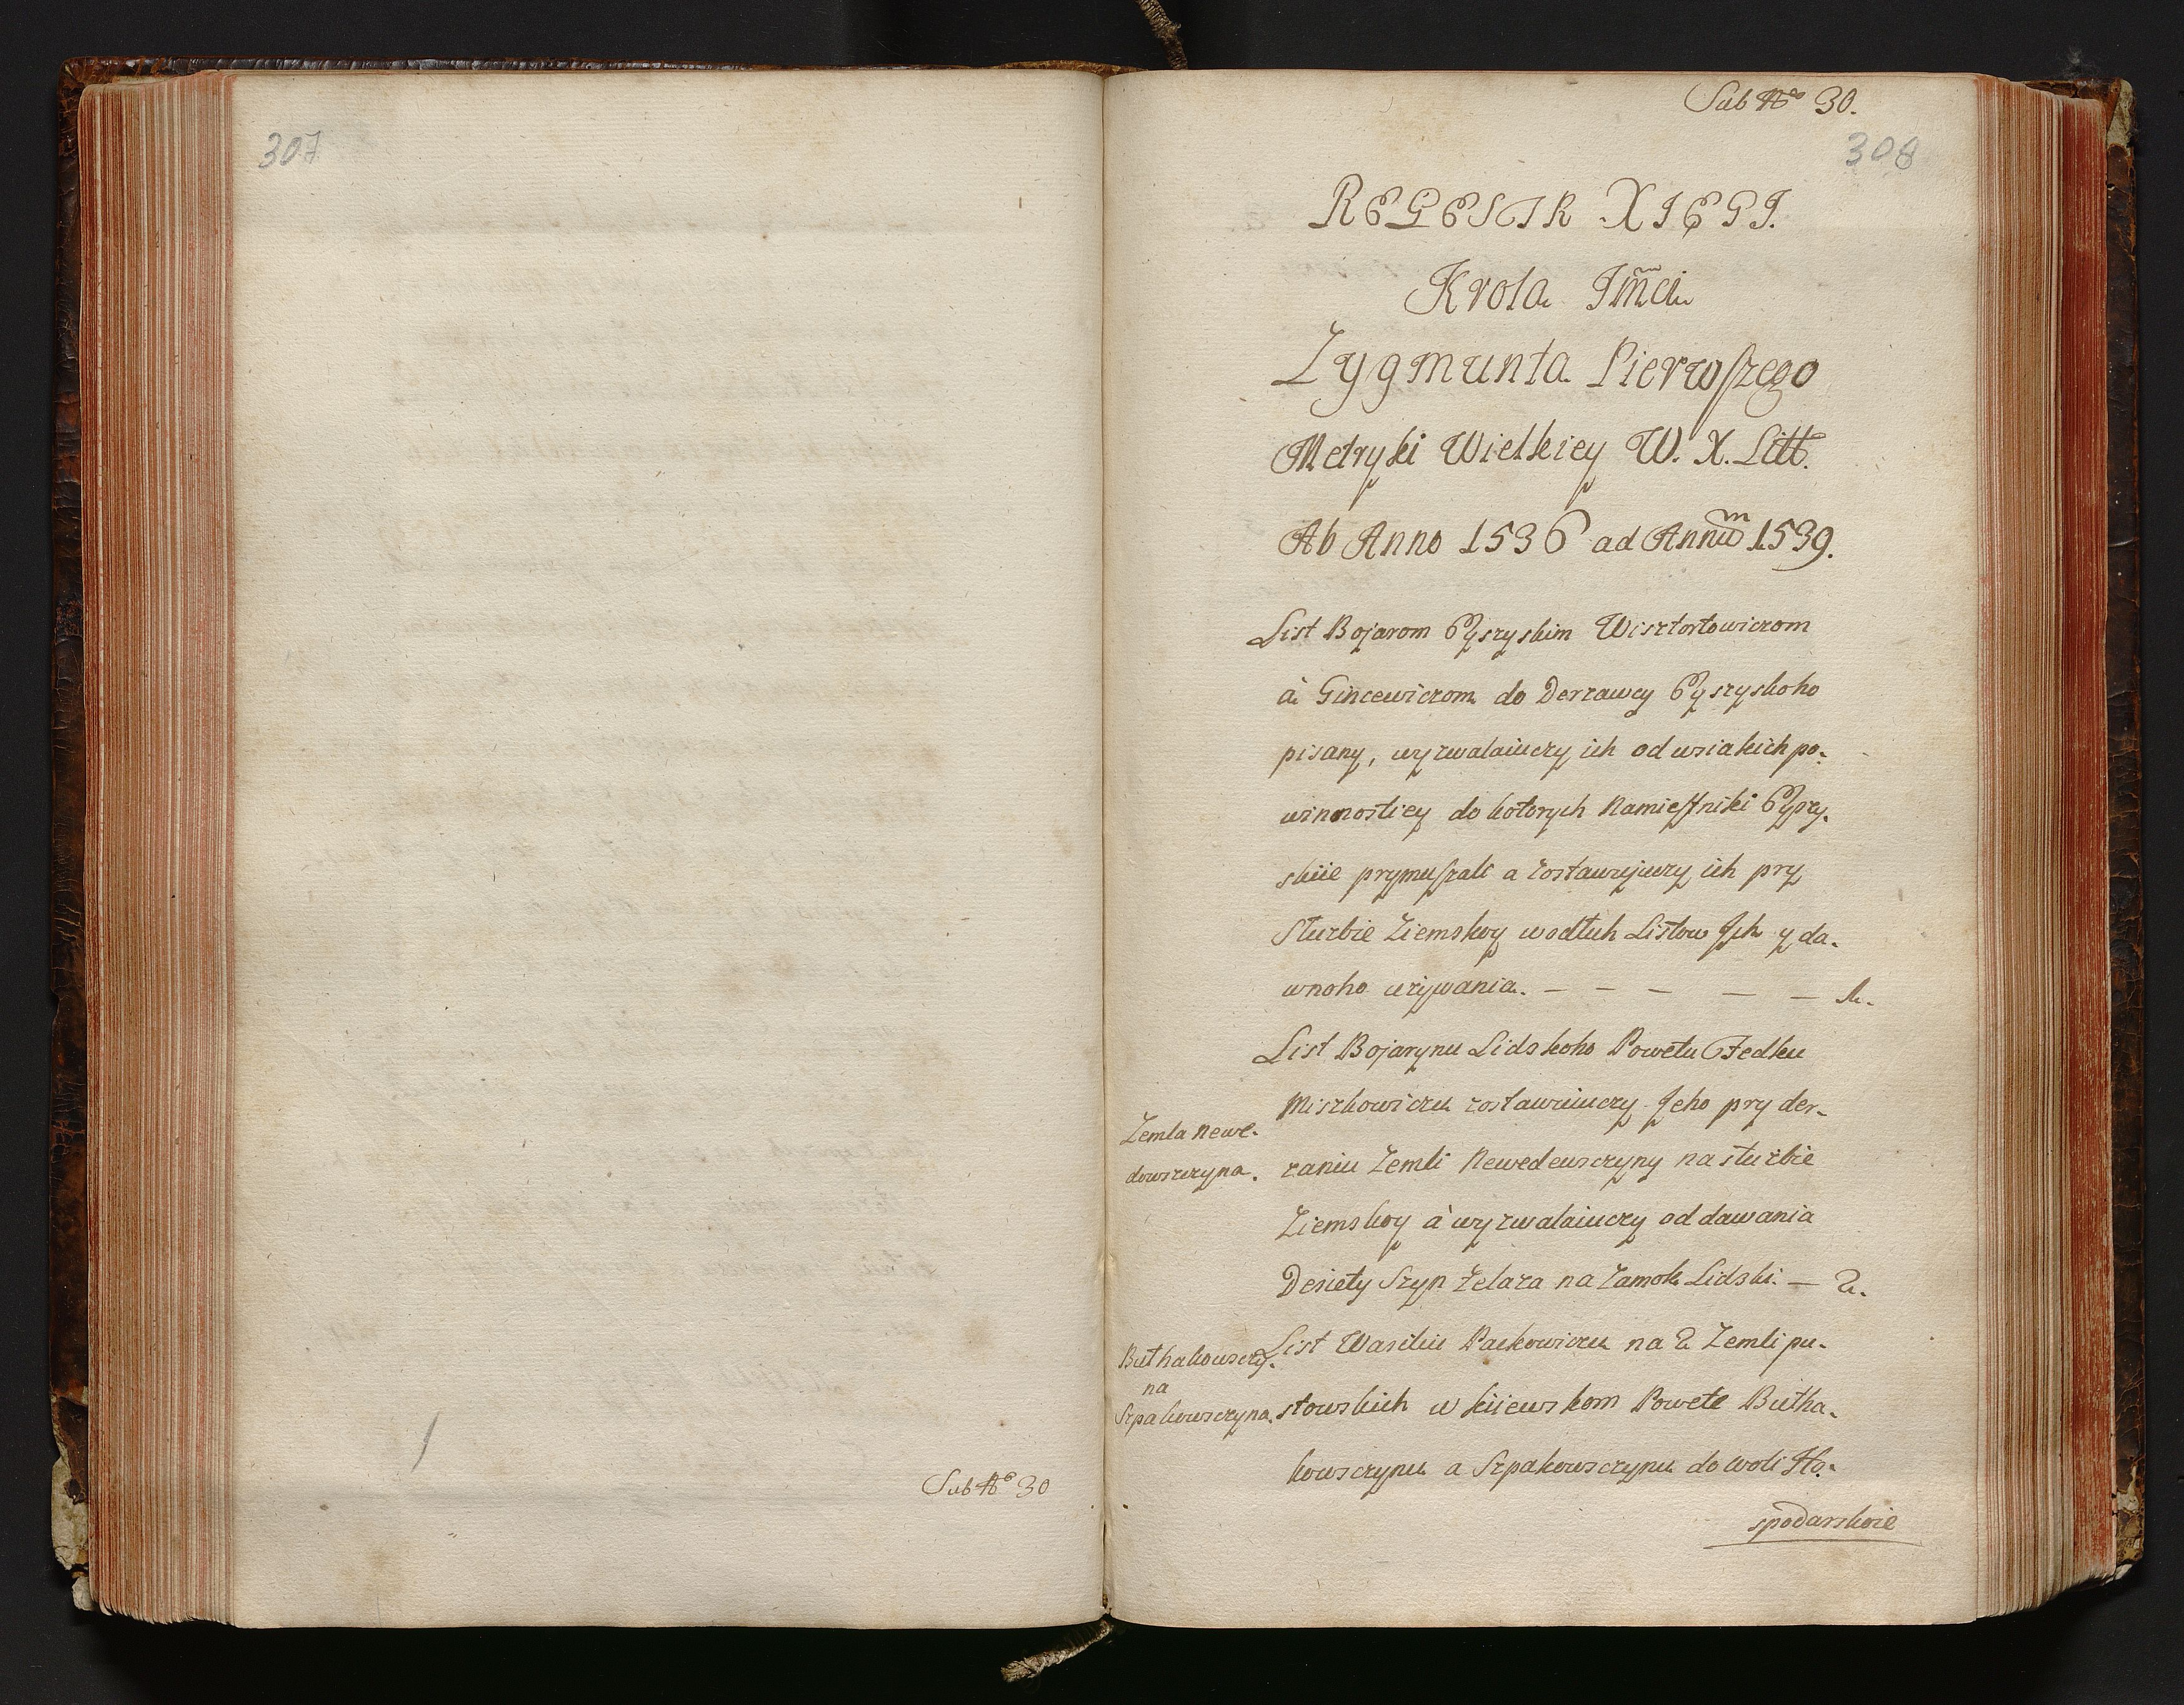 307
Sub No 30
Sub No 30.
308
REGESTR XIĘGI.
Krola Jm̃ci
Zygmunta Pierwszego
Metryki Wielkiey W. X. Litt.
Ab Anno 1536 ad Annum 1539.
List Bojarom Eyszyskim Wisztortowiczom
à Gincewiczom do Derzawcy Eyszyskoho
pisany, wyzwalaiuczy ich od wsiakich po-
winnostiey do kotorych Namiestniki Eyszy-
skiie prymuszali a zostawujuczy ich pry
Służbie Ziemskoy wodłuh Listow Jch y da-
wnoho używania. — — — — — 1.
List Bojarynu Lidskoho Powetu Fedku
Miszkowiczu zostawuiuczy Jeho pry der-
Zemla Newe-
dowszczyna.
zaniu Zemli Newedewsczyny na służbie
Ziemskoy à wyzwalaiuczy od dawania
Desiety Szyn Zelaza na Zamok Lidski. — 2.
List Wasiliu Packowiczu na 2 Zemli pu-
Buthakowsczy-
na
Szpakowsczyna.
stowskich w kiiewskom Powete Butha-
kowsczynu a Szpakowsczynu do woli Ho-
spodarskoie